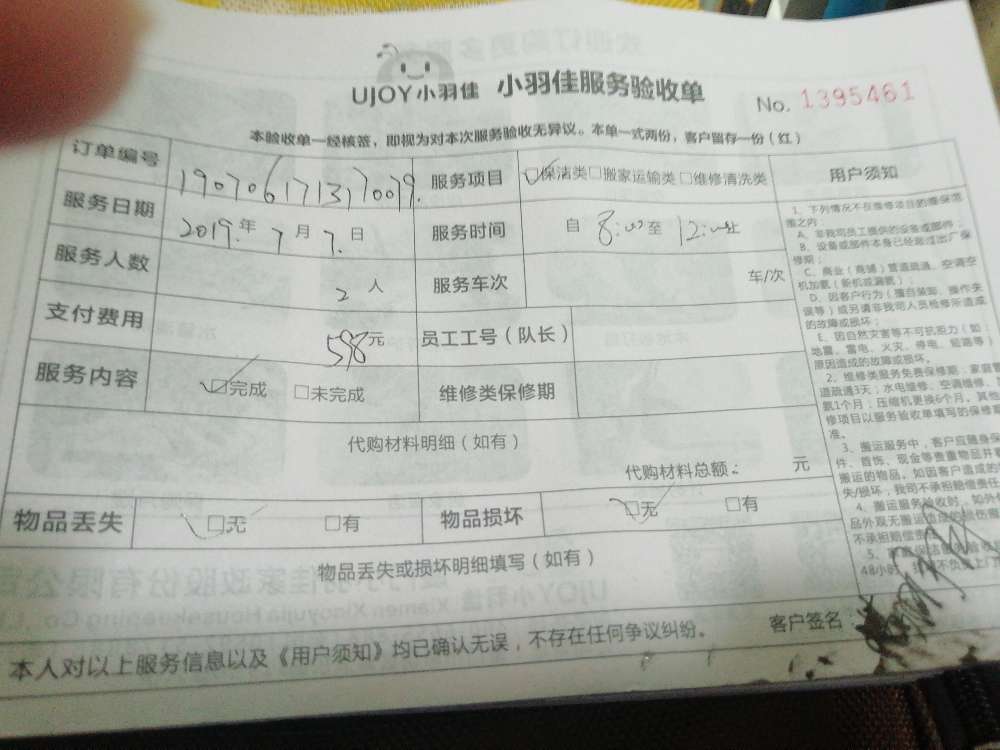 UJOY小羽佳 小羽佳服务验收单 No. 1395461
本验收单一经核签，即视为对本次服务验收无异议。本单一式两份，客户留存一份（红）
订单编号 1907061713170079 服务项目 ☑保洁类 □搬家运输类 □维修清洗类 用户须知
服务日期 2019年7月7日 服务时间 自8:00至12:00止
服务人数 2人 服务车次 车/次
支付费用 598元 员工工号（队长）
服务内容 ☑完成 □未完成 维修类保修期
代购材料明细（如有）
代购材料总额： 元
物品丢失 ☑无 □有 物品损坏 ☑无 □有
物品丢失或损坏明细填写（如有）
本人对以上服务信息以及《用户须知》均已确认无误，不存在任何争议纠纷。 客户签名：
1、下列情况不在维修项目的维保范
围之内：
A、非我司员工提供的设备或部件；
B、设备或部件本身已经超过出厂保
修期；
C、商业（商铺）管道疏通、空调空
机加氨（新机或漏氨）；
D、因客户行为（擅自装卸、操作失
误等）或另请非我司人员检修所造成
的故障或损坏；
E、因自然灾害等不可抗拒力（如：
地震、雷电、火灾、停电、短路等）
原因造成的故障或损坏。
2、维修类服务免费保修期，家庭管
道疏通3天；水电维修、空调维修、
氨1个月；压缩机更换6个月。其他
修项目以服务验收单填写的保修
准。
3、搬运服务中，客户应随身保
件、首饰、现金等贵重物品并
搬运的物品。如因客户造成的
失/损坏，我司不承担赔偿责任
4、搬运服务验收时，如外
品外观无搬运造成的损伤
不承担赔偿责
48小时